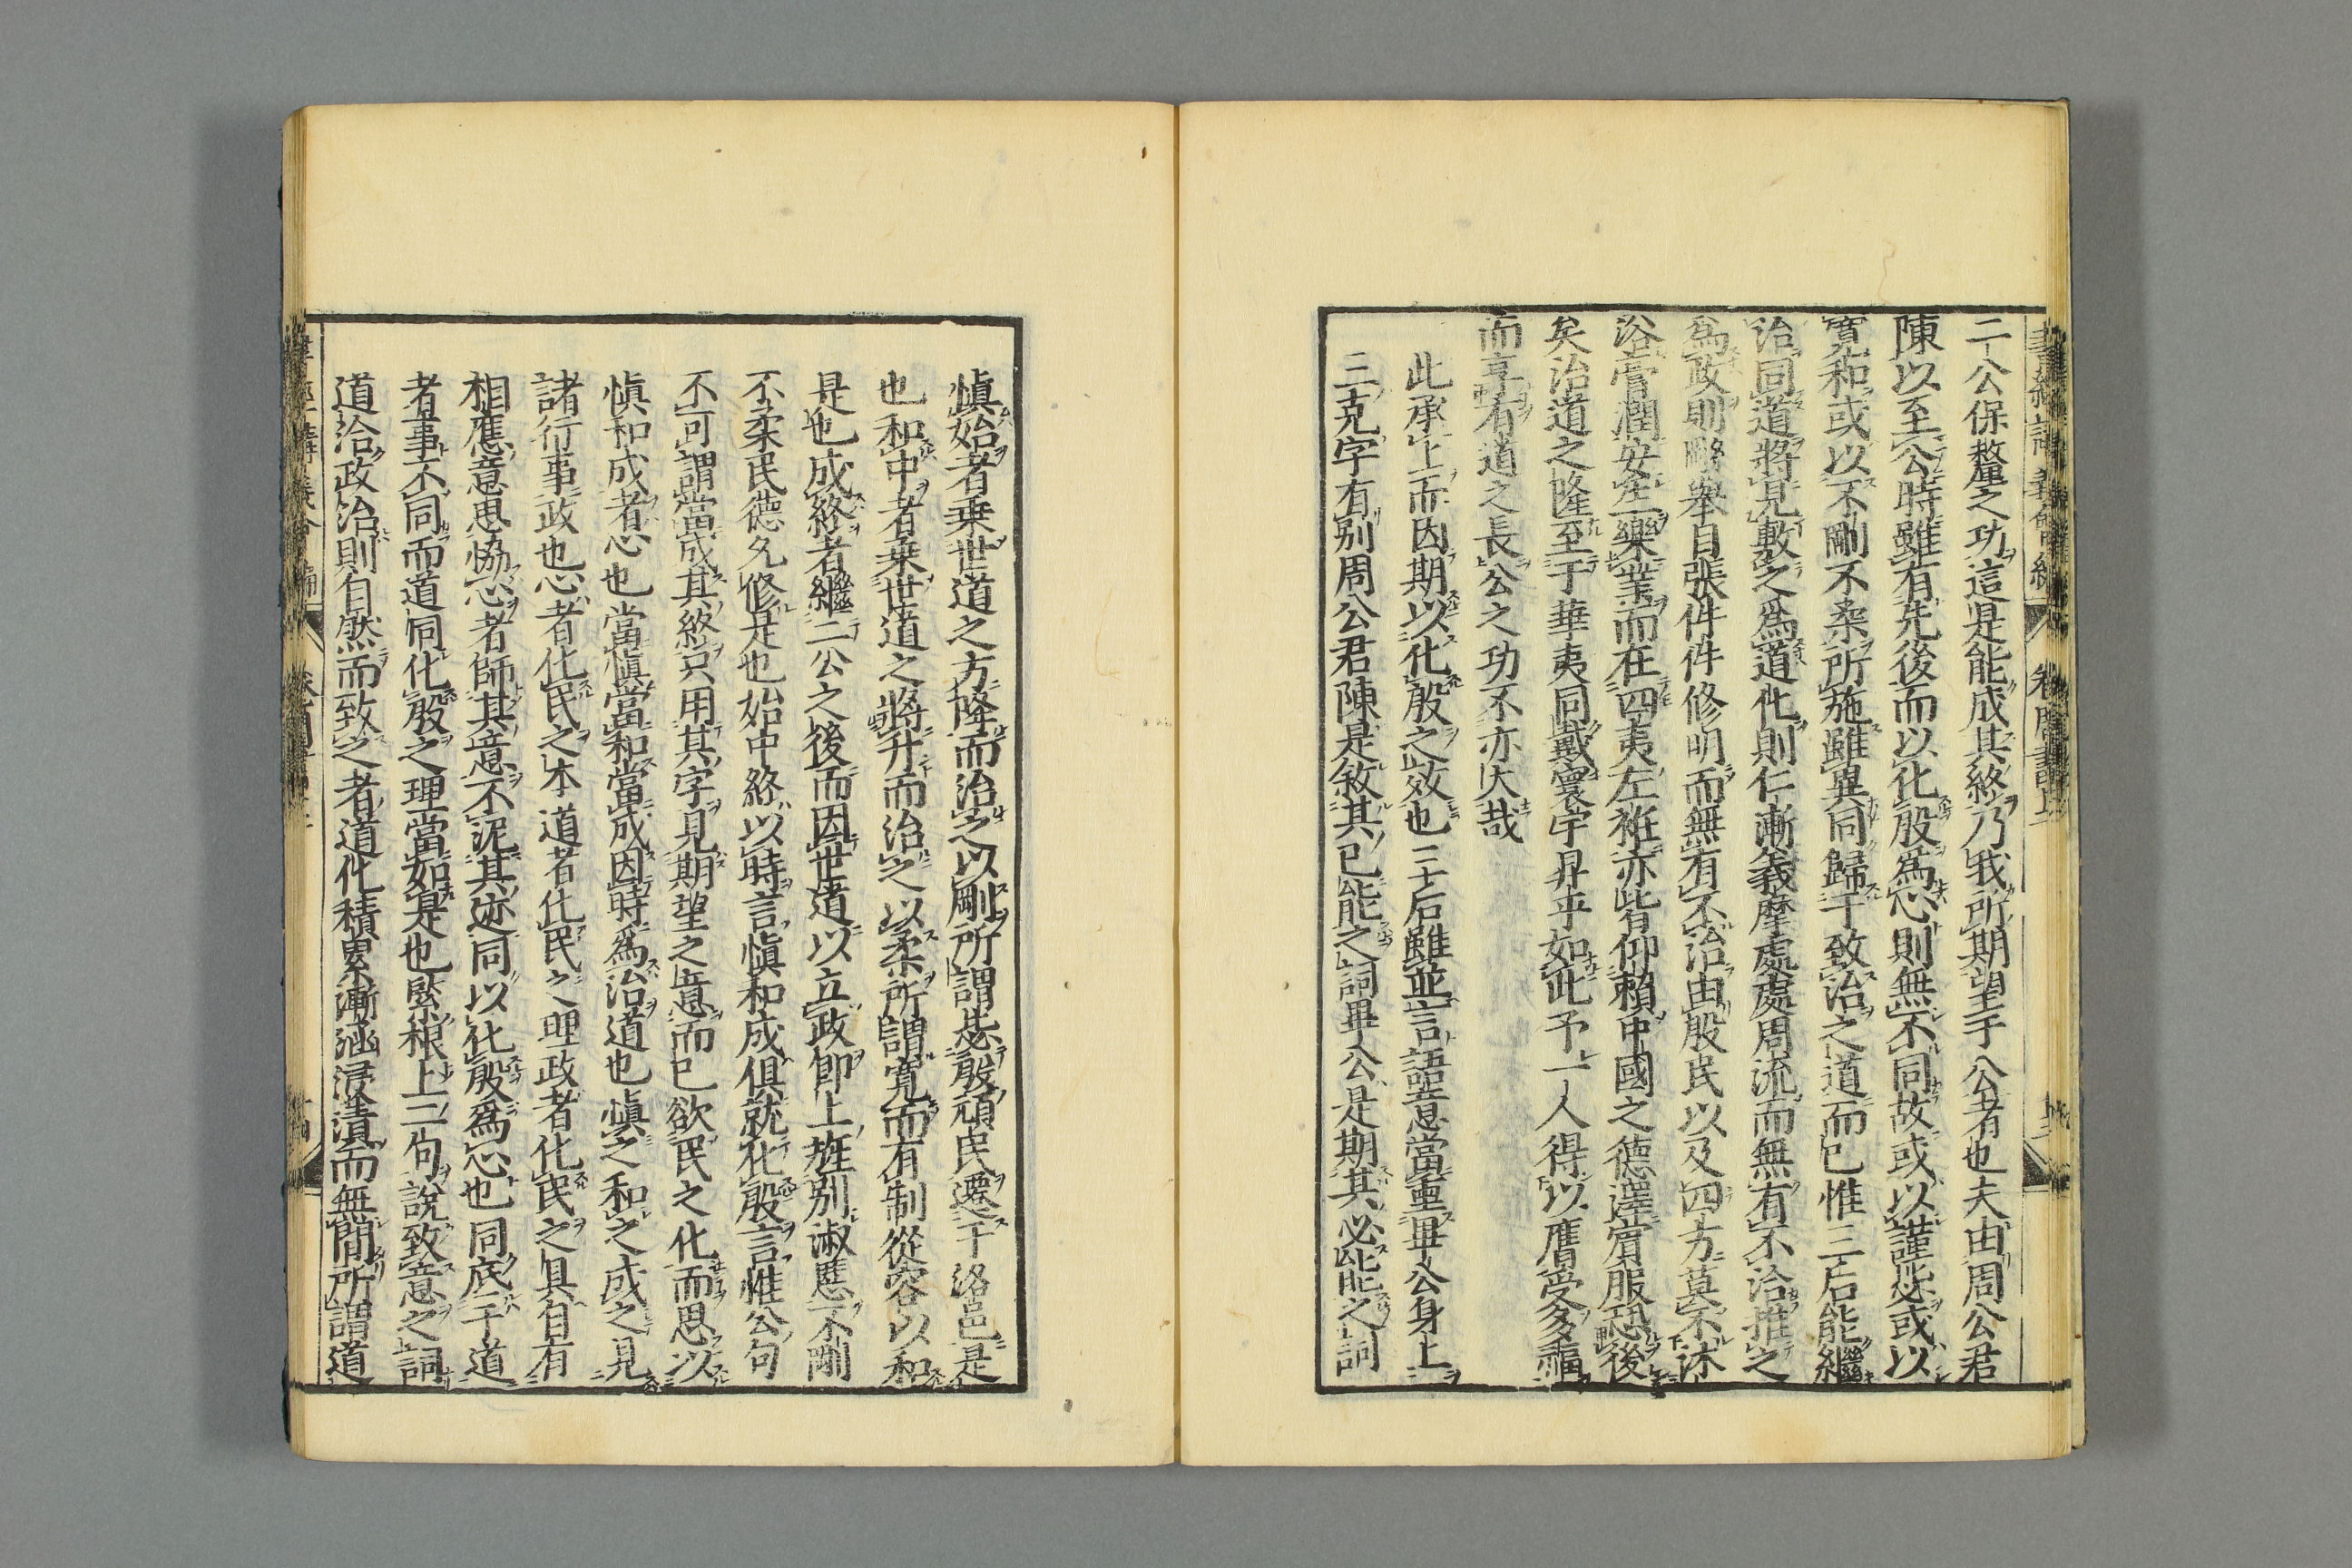 二公保釐之功這是能成其終乃我所期望于公者也夫由周公君
陳以至公時雖有先後而以化殷為心則無不同故或以謹毖或以
寬和或以不剛不柔所施雖異同歸于致治之道而已惟三后能繼
治同道將見敷之為道化則仁漸義摩處處周流而無有不洽推之
為政則剛舉目張件件修明而無有不治由殷民以及四方莫不沐
浴膏潤安生樂業而在四夷左衽亦皆仰賴中國之德澤賓服恐後
矣治道之隆至于華夷同戴寰宇昇平如此予一人得以膺受多福
而享有道之長公之功不亦大哉
此承上而因期以化殷之效也三后雖並言語意當重畢公身上
三克字有別周公君陳是敘其已能之詞畢公是期其必能之詞
慎始者乗世道之方降而治之以剛所謂毖殷頑民遷于洛邑是
也和中者乗世道之將升而治之以柔所謂寬而有制從容以和
是也成終者繼二公之後而因世道以立政即上旌別淑慝不剛
不柔民德允修是也始中終以時言慎和成俱就化殷言惟公句
不可謂當成其終只用其字見期望之意而已欲民之化而思以
慎和成者心也當慎當和當成因時為治道也慎之和之成之見
諸行事政也心者化民之本道者化民之理政者化民之具自有
相應意思恊心者師其意不泥其迹同以化殷為心也同底于道
者事不同而道同化殷之理當如是也緊根上二句說致意之詞
道洽政治則自然而致之者道化積累漸涵浸漬而無間所謂道